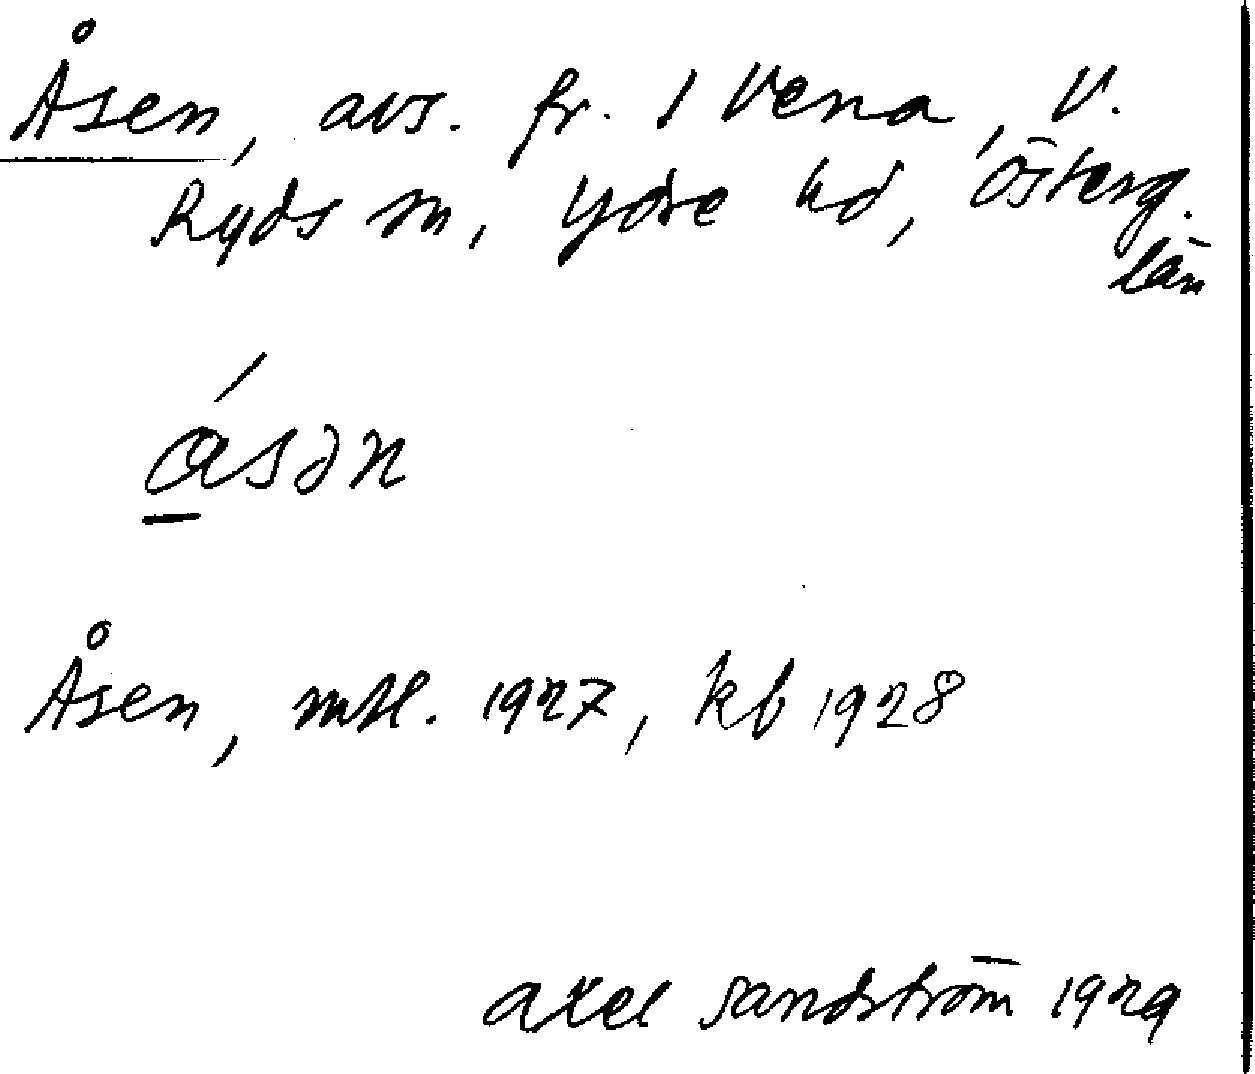 Åsen, avs. fr. 1 Vena, V.
Ryds sn, Ydre hd, Österg.
län
ásən
Åsen, mtl. 1927, kb 1928
Axel Sandström 1929